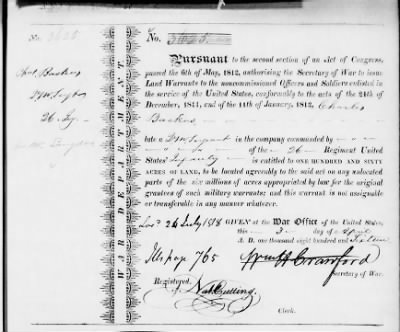 No. 3625
No. 3625
Chas. Backus
26 Inf.
WAR DEPARTMENT.
Pursuant to the second section of an Act of Congress,
passed the 6th of May, 1812, authorising the Secretary of War to issue
Land Warrants to the noncommissioned Officers and Soldiers enlisted in
the service of the United States, conformably to the acts of the 24th of
December, 1811, and of the 11th of January, 1812, Charles
Backus
late a in the company commanded by
of the 26 Regiment United
States' Infantry is entitled to ONE HUNDRED AND SIXTY
ACRES OF LAND, to be located agreeably to the said act on any unlocated
parts of the six millions of acres appropriated by law for the original
grantees of such military warrants; and this warrant is not assignable
or transferable in any manner whatever.
24 July 1818 GIVEN at the War Office of the United States,
this 3 day of April
A. D. one thousand eight hundred and Sixteen
765
Wm H Crawford
Secretary of War.
Registered.
Nat. Cutting.
Clerk.